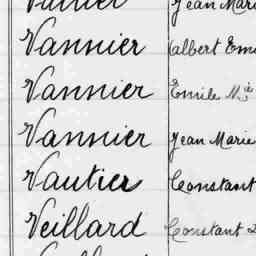 Jean Marie
Vannier albert
Vannier Emile
Vannier Jean Marie
Vautier Constant
Veillard Constant